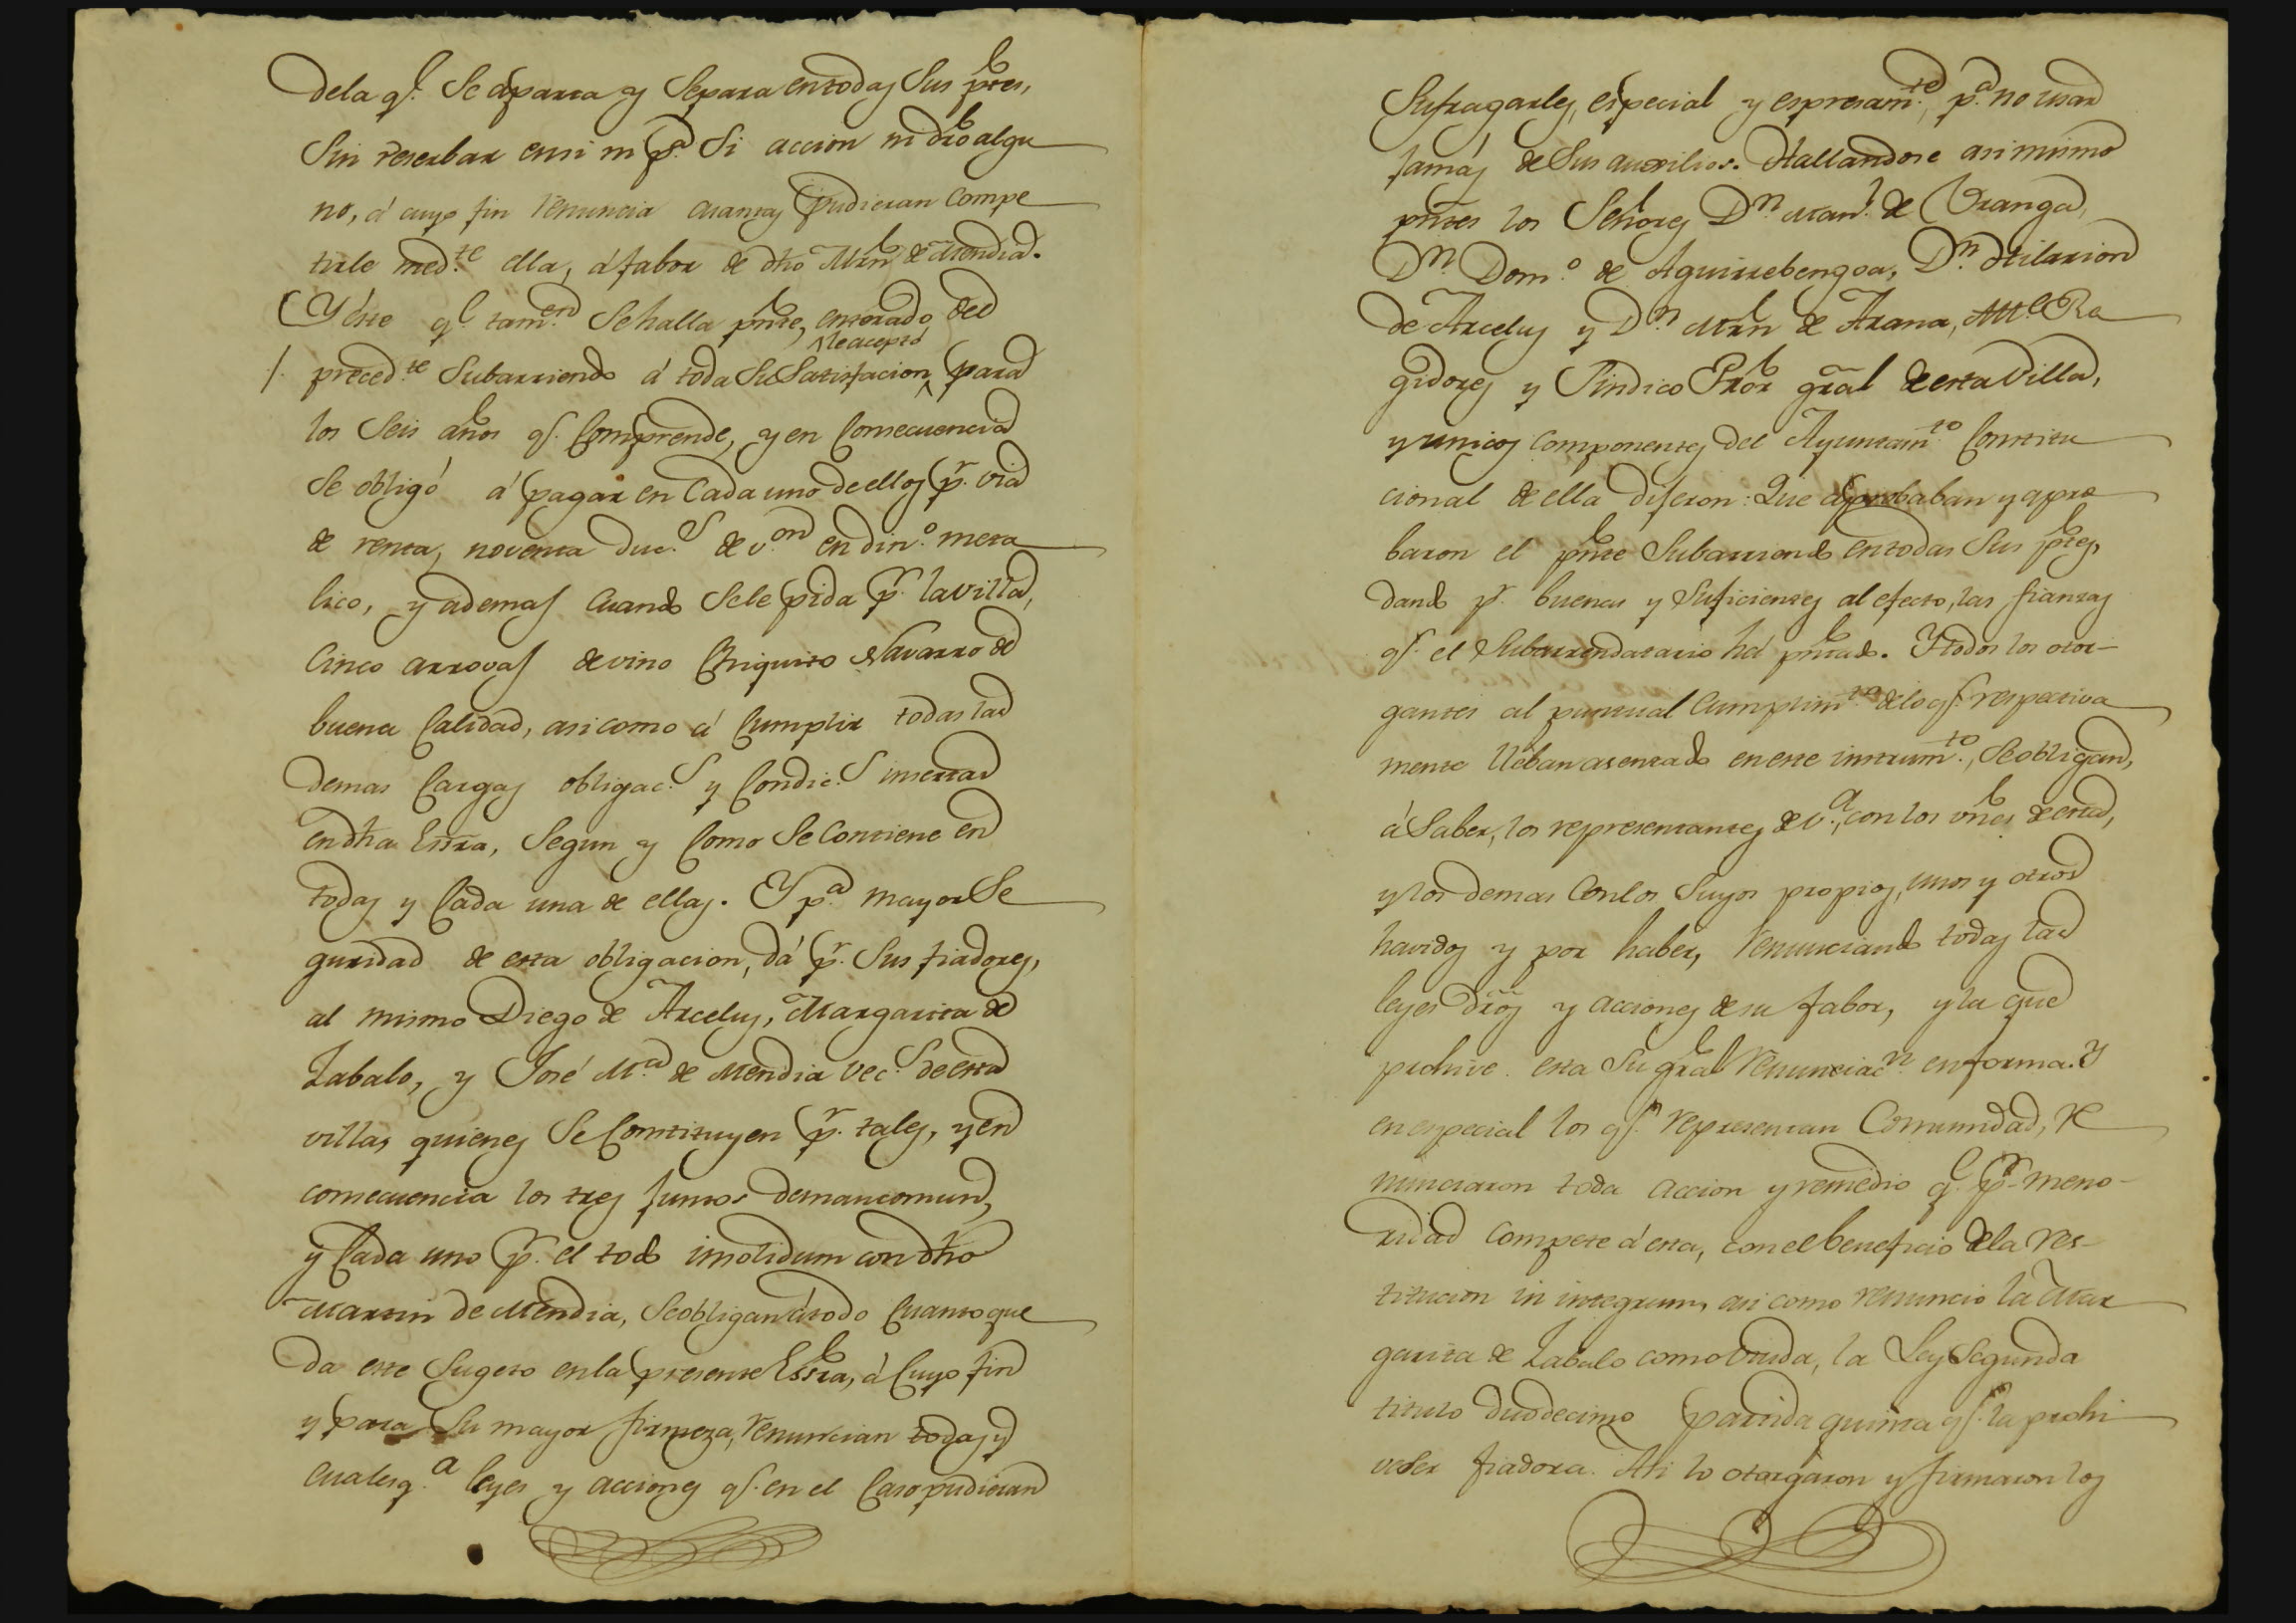 dela q.l Se aparta y Separa entodas Sus ptes,
Sin reserbar ensi ni p.a Si accion ni dro algu
no, á cuyo fin renuncia cuantas pudieran compe
tirle med.te ella, á fabor de dho Mrn de Mendia.
Y éste q.l tam.en Se halla pnte, enterado del
le aceptó
/. preced.te Subarriendo á toda Su Satisfacion ^ para
los Seis años q.e Comprende, y en Consecuencia
Se obligó á pagar en Cada uno de ellos p.r via
de renta, noventa duc.s de v.on en din.o meta
lico, y ademas Cuando Sele pida p.r la villa,
Cinco arrovas de vino Chiquito Navarro de
buena Calidad, asi como á Cumplir todas las
demas Cargas obligac.s y Condic.s insertas
en dha Essra, Segun y Como Se Contiene en
todas y Cada una de ellas. Y p.a mayor Se
guridad de esta obligacion, dá p.r Sus fiadores,
al mismo Diego de Arcelus, Margarita de
Zabalo, y José M.a de Mendia vec.s de esta
villa, quienes Se Constituyen p.r tales, y en
consecuencia los tres Juntos demancomun,
y Cada uno p.r el todo insolidum con dho
Martin de Mendia, Se obligan á todo Cuanto que
da este Sugeto en la presente Essra, á Cuyo fin
y para Su mayor firmeza, renuncian todas y
cualesq.a leyes y acciones q.e en el Caso pudieran
Sufragarles, especial y espresam.te, p.a no usar
Jamás de Sus auxilios. Hallandose asi mismo
pntes los Señores D.n Man.l de Uranga,
D.n Dom.o de Aguirrebengoa, D.n Hilarion
de Arcelus y D.n Mrn de Arana, Alc.e Re
gidores y Sindico Pror gral de esta Villa,
y unicos componentes del Ayuntam.to Constitu
cional de ella diJeron: Que aprobaban y apro
baron el pnte Subarriendo entodas Sus ptes,
dando p.r buenas y Suficientes al efecto, las fianzas
q.e el Subarrendatario há pntado. Y todos los otor-
gantes al puntual Cumplim.to delo q.e respectiva
mente lleban asentado en este instrum.to, Se obligan,
á Saber, los representantes de v.a, con los vnes de esta,
y los demas Con los Suyos propios, unos y otros
havidos y por haber, renunciando todas las
leyes dros y acciones de su fabor, y la que
prohive esta Su gral renunciac.n en forma. Y
en especial los q.e representan Comunidad, re
nunciaron toda accion y remedio q.e p.r meno-
ridad compete á esta, con el beneficio dela res-
titucion in integrum, asi como renunció la Mar
garita de Zabalo como viuda, la Ley Segunda
titulo duodecimo partida quinta q.e la prohi
ve Ser fiadora. Asi lo otorgaron y firmaron los